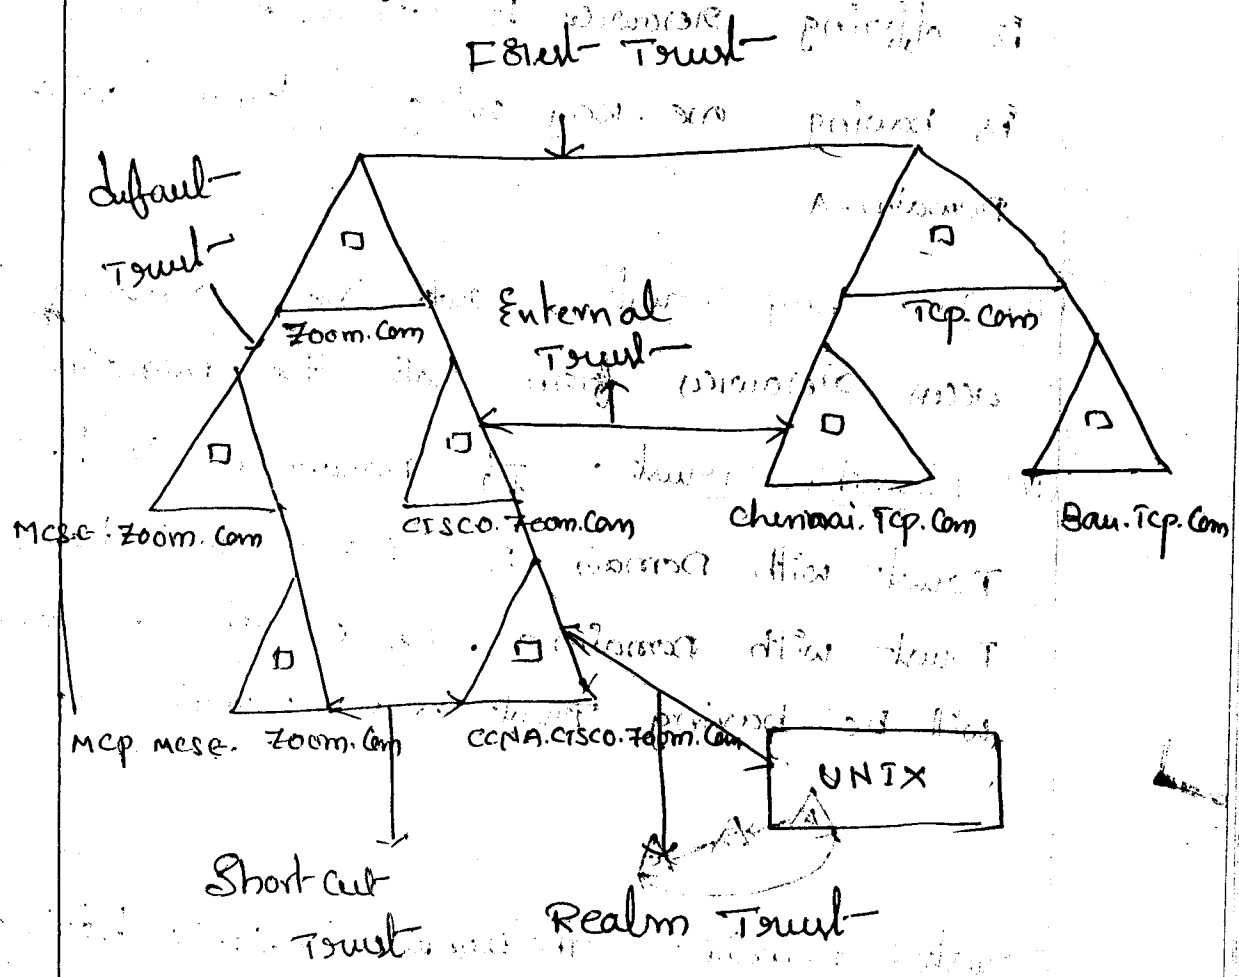 Forest Trust
default
Trust
Zoom.Com
External
Trust
Tcp.Com
MCSE.Zoom.Com
CISCO.Zoom.Com
Chennai.Tcp.Com
Ban.Tcp.Com
MCP MCSE. Zoom.Com
CCNA.CISCO.Zoom.Com
UNIX
Short cut
Trust
Realm Trust